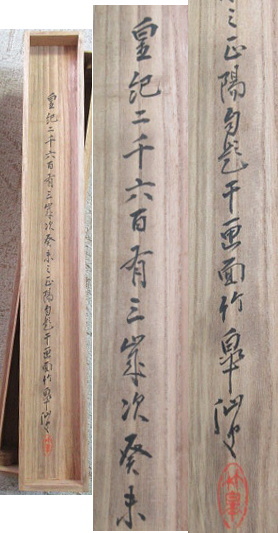 皇紀二千六百有三歳次癸未之正陽自題于画面竹皐
皇紀二千六百有三歳次癸未
之正陽自題于画面竹皐